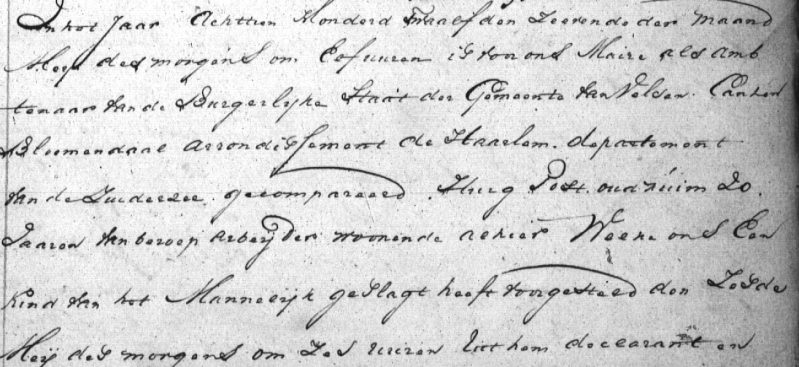 In het Jaar Achttien Honderd Twaalf den Zeevende der Maand
Meij des morgens om Elf uuren is voor ons Maire als Amb
tenaar van de Burgerlyke Staat der Gemeente van Velsen Canton
Bloemendaal Arrondissement de Haarlem. departement
van de Zuiderzee gecompareerd Huig Post. oud ruim 20.
Jaaren van beroep Arbeijder woonende alhier Welke ons Een
kind van het Mannelijk geslagt heeft voorgesteld den Zesde
Meij des morgens om Zes uuren Uit hem declarant en